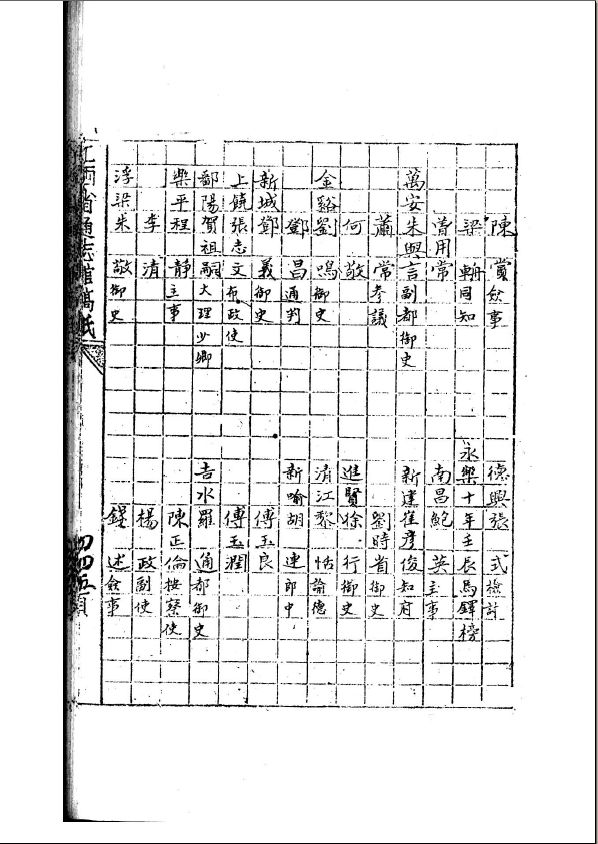 陳賞僉事
梁輈同知
曾用常
萬安朱與言副都御史
蕭常參議
何敬
金谿劉鳴御史
鄧昌通判
新城鄧義御史
上饒張志文布政使
鄱陽賀祖嗣大理少卿
樂平程靜主事
李清
浮梁朱敬御史
德興張式檢討
永樂十年壬辰馬鐸榜
南昌鮑英主事
新建崔彥俊知府
劉時省御史
進賢徐行御史
清江黎恬諭德
新喻胡連郎中
傅玉良
傅玉潤
吉水羅通都御史
陳正倫按察使
楊政副使
錢述僉事
江西省通志館稿紙
四四五頁